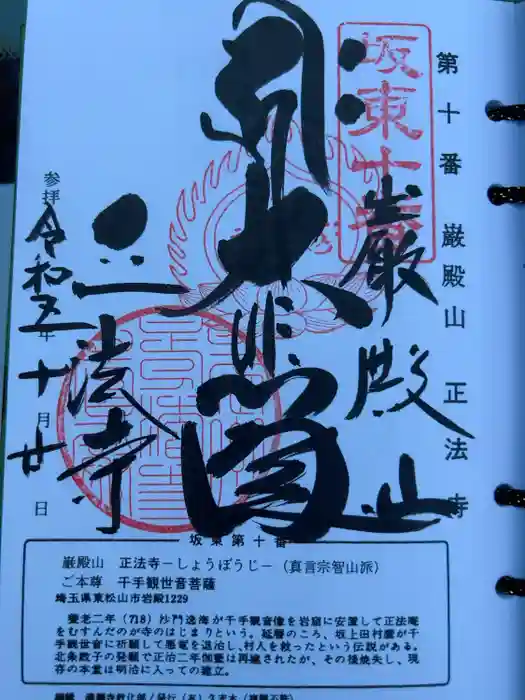 第十番 巌殿山 正法寺
坂東十番
巌殿山
大悲閣
正法寺
参拝
令和五年十月廿日
坂東第十番
巌殿山 正法寺－しょうぼうじ－（真言宗智山派）
ご本尊 千手観世音菩薩
埼玉県東松山市岩殿1229
養老二年（718）沙門逸海が千手観音像を岩窟に安置して正法庵
をむすんだのが寺のはじまりという。延暦のころ、坂上田村麿が千
手観世音に祈願して悪竜を退治し、村人を救ったという伝説がある。
北条政子の発願で正治二年伽藍は再建されたが、その後焼失し、現
存の本堂は明治に入っての建立。